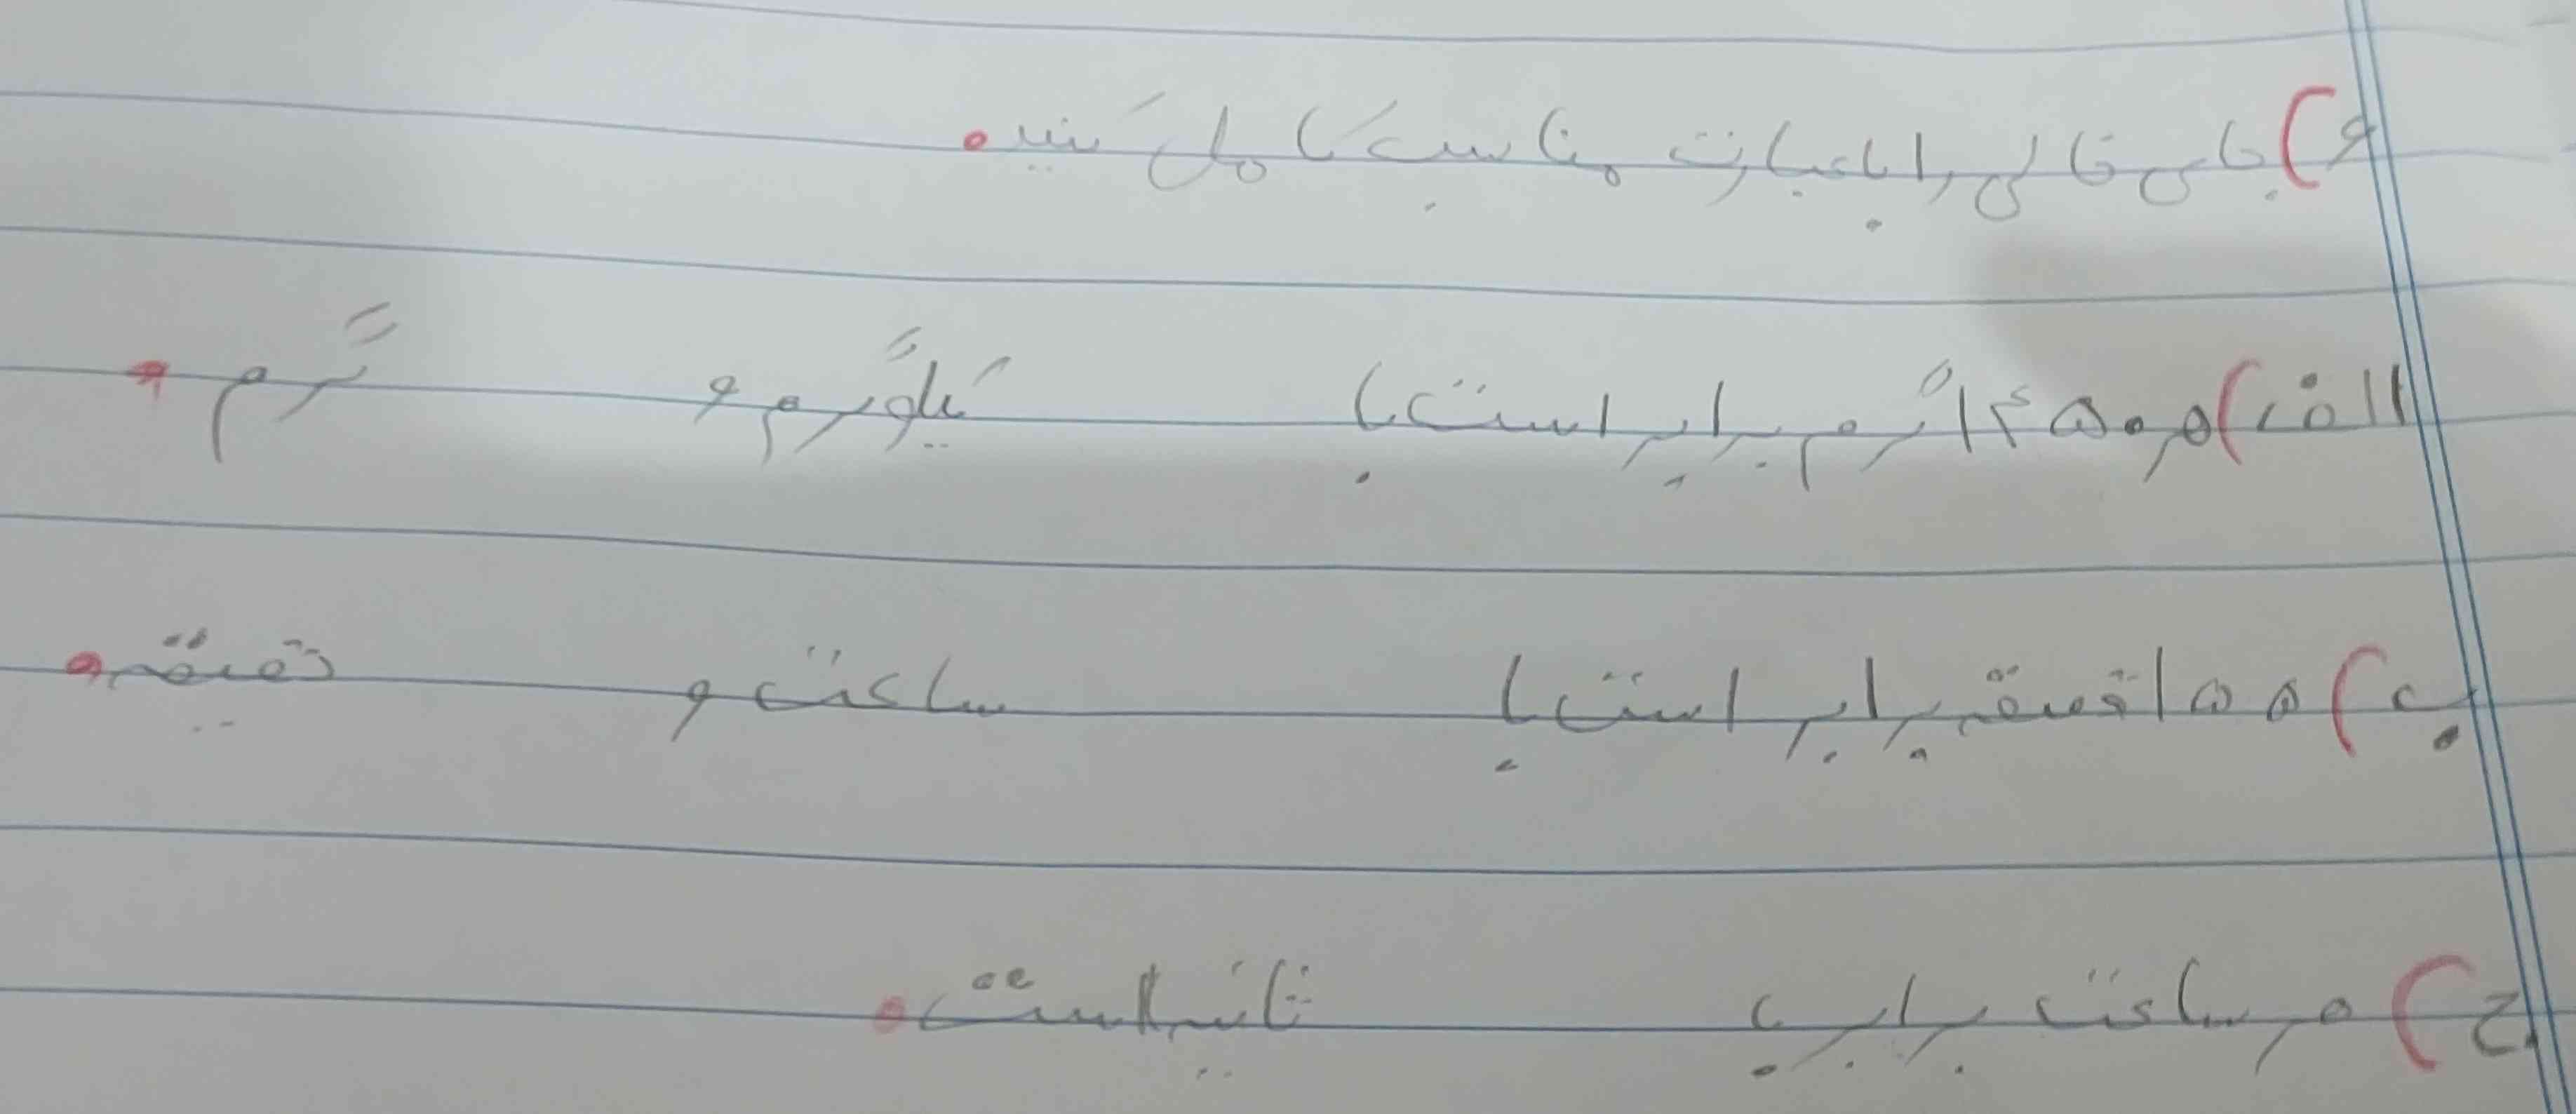 و) جای خالی را با عبارت مناسب کامل کنید.
الف) هر ۱۴۵۰ گرم برابر است با کیلوگرم و گرم.
ب) ۱۵۵ دقیقه برابر است با ساعت و دقیقه.
ج) هر ساعت برابر ب ثانیه است.